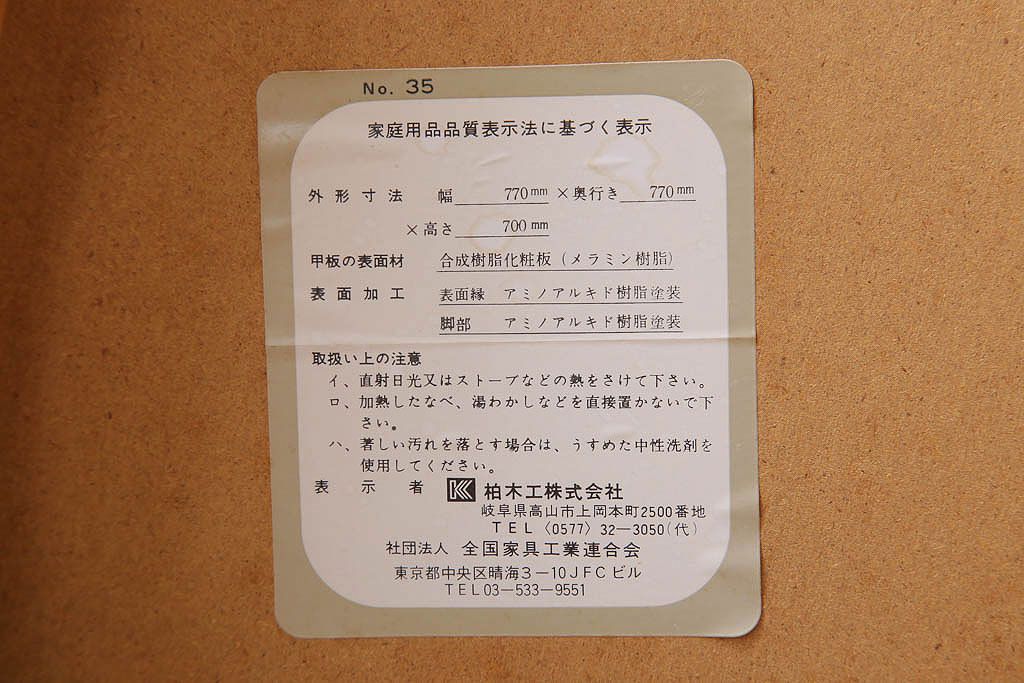 No. 35
家庭用品品質表示法に基づく表示
外形寸法 幅 770mm ×奥行き 770mm
×高さ 700mm
甲板の表面材 合成樹脂化粧板（メラミン樹脂）
表面加工 表面縁 アミノアルキド樹脂塗装
脚部 アミノアルキド樹脂塗装
取扱い上の注意
イ、直射日光又はストーブなどの熱をさけて下さい。
ロ、加熱したなべ、湯わかしなどを直接置かないで下
さい。
ハ、著しい汚れを落とす場合は、うすめた中性洗剤を
使用してください。
表示者 K 柏木工株式会社
岐阜県高山市上岡本町2500番地
TEL〈0577〉32—3050(代)
社団法人 全国家具工業連合会
東京都中央区晴海3－10JFCビル
TEL03—533—9551